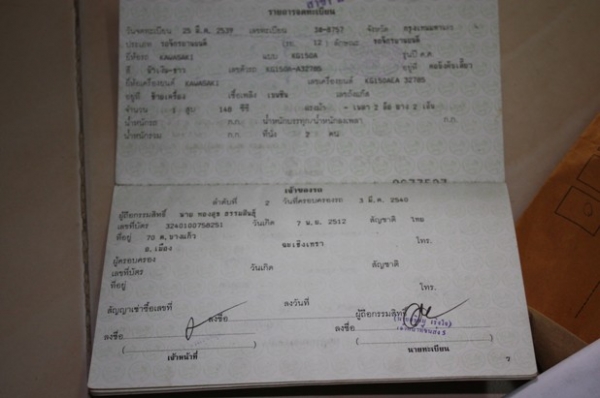 รายการจดทะเบียน
วันจดทะเบียน 25 มี.ค. 2539 เลขทะเบียน จังหวัด กรุงเทพมหานคร
ประเภท รถจักรยานยนต์ (รย. 12) ลักษณะ รถจักรยานยนต์
ยี่ห้อรถ KAWASAKI แบบ KG150A รุ่นปี ค.ศ.
สี เลขตัวรถ KG150A-A32785 อยู่ที่ คอถังหัวเลี้ยว
ยี่ห้อเครื่องยนต์ KAWASAKI เลขเครื่องยนต์ KG150AEA 32785
อยู่ที่ ข้างเครื่อง เชื้อเพลิง เบนซิน เลขถังแก๊ส
จำนวน สูบ 148 ซีซี แรงม้า - เพลา 2 ล้อ ยาง 2 เส้น
น้ำหนักรถ ก.ก. น้ำหนักบรรทุก/น้ำหนักลงเพลา ก.ก.
น้ำหนักรวม ก.ก. ที่นั่ง 2 คน
เจ้าของรถ
ลำดับที่ 2 วันที่ครอบครองรถ 3 มี.ค. 2540
ผู้ถือกรรมสิทธิ์ นาย ทองสุข
เลขที่บัตร 3240100758251 วันเกิด 7 พ.ย. 2512 สัญชาติ ไทย
ที่อยู่ 70 ต.บางแก้ว
อ.เมือง ฉะเชิงเทรา โทร.
ผู้ครอบครอง
เลขที่บัตร วันเกิด สัญชาติ
ที่อยู่ โทร.
สัญญาเช่าซื้อเลขที่ ลงวันที่
ลงชื่อ ผู้ถือกรรมสิทธิ์
ลงชื่อ ลงชื่อ
เจ้าหน้าที่ นายทะเบียน